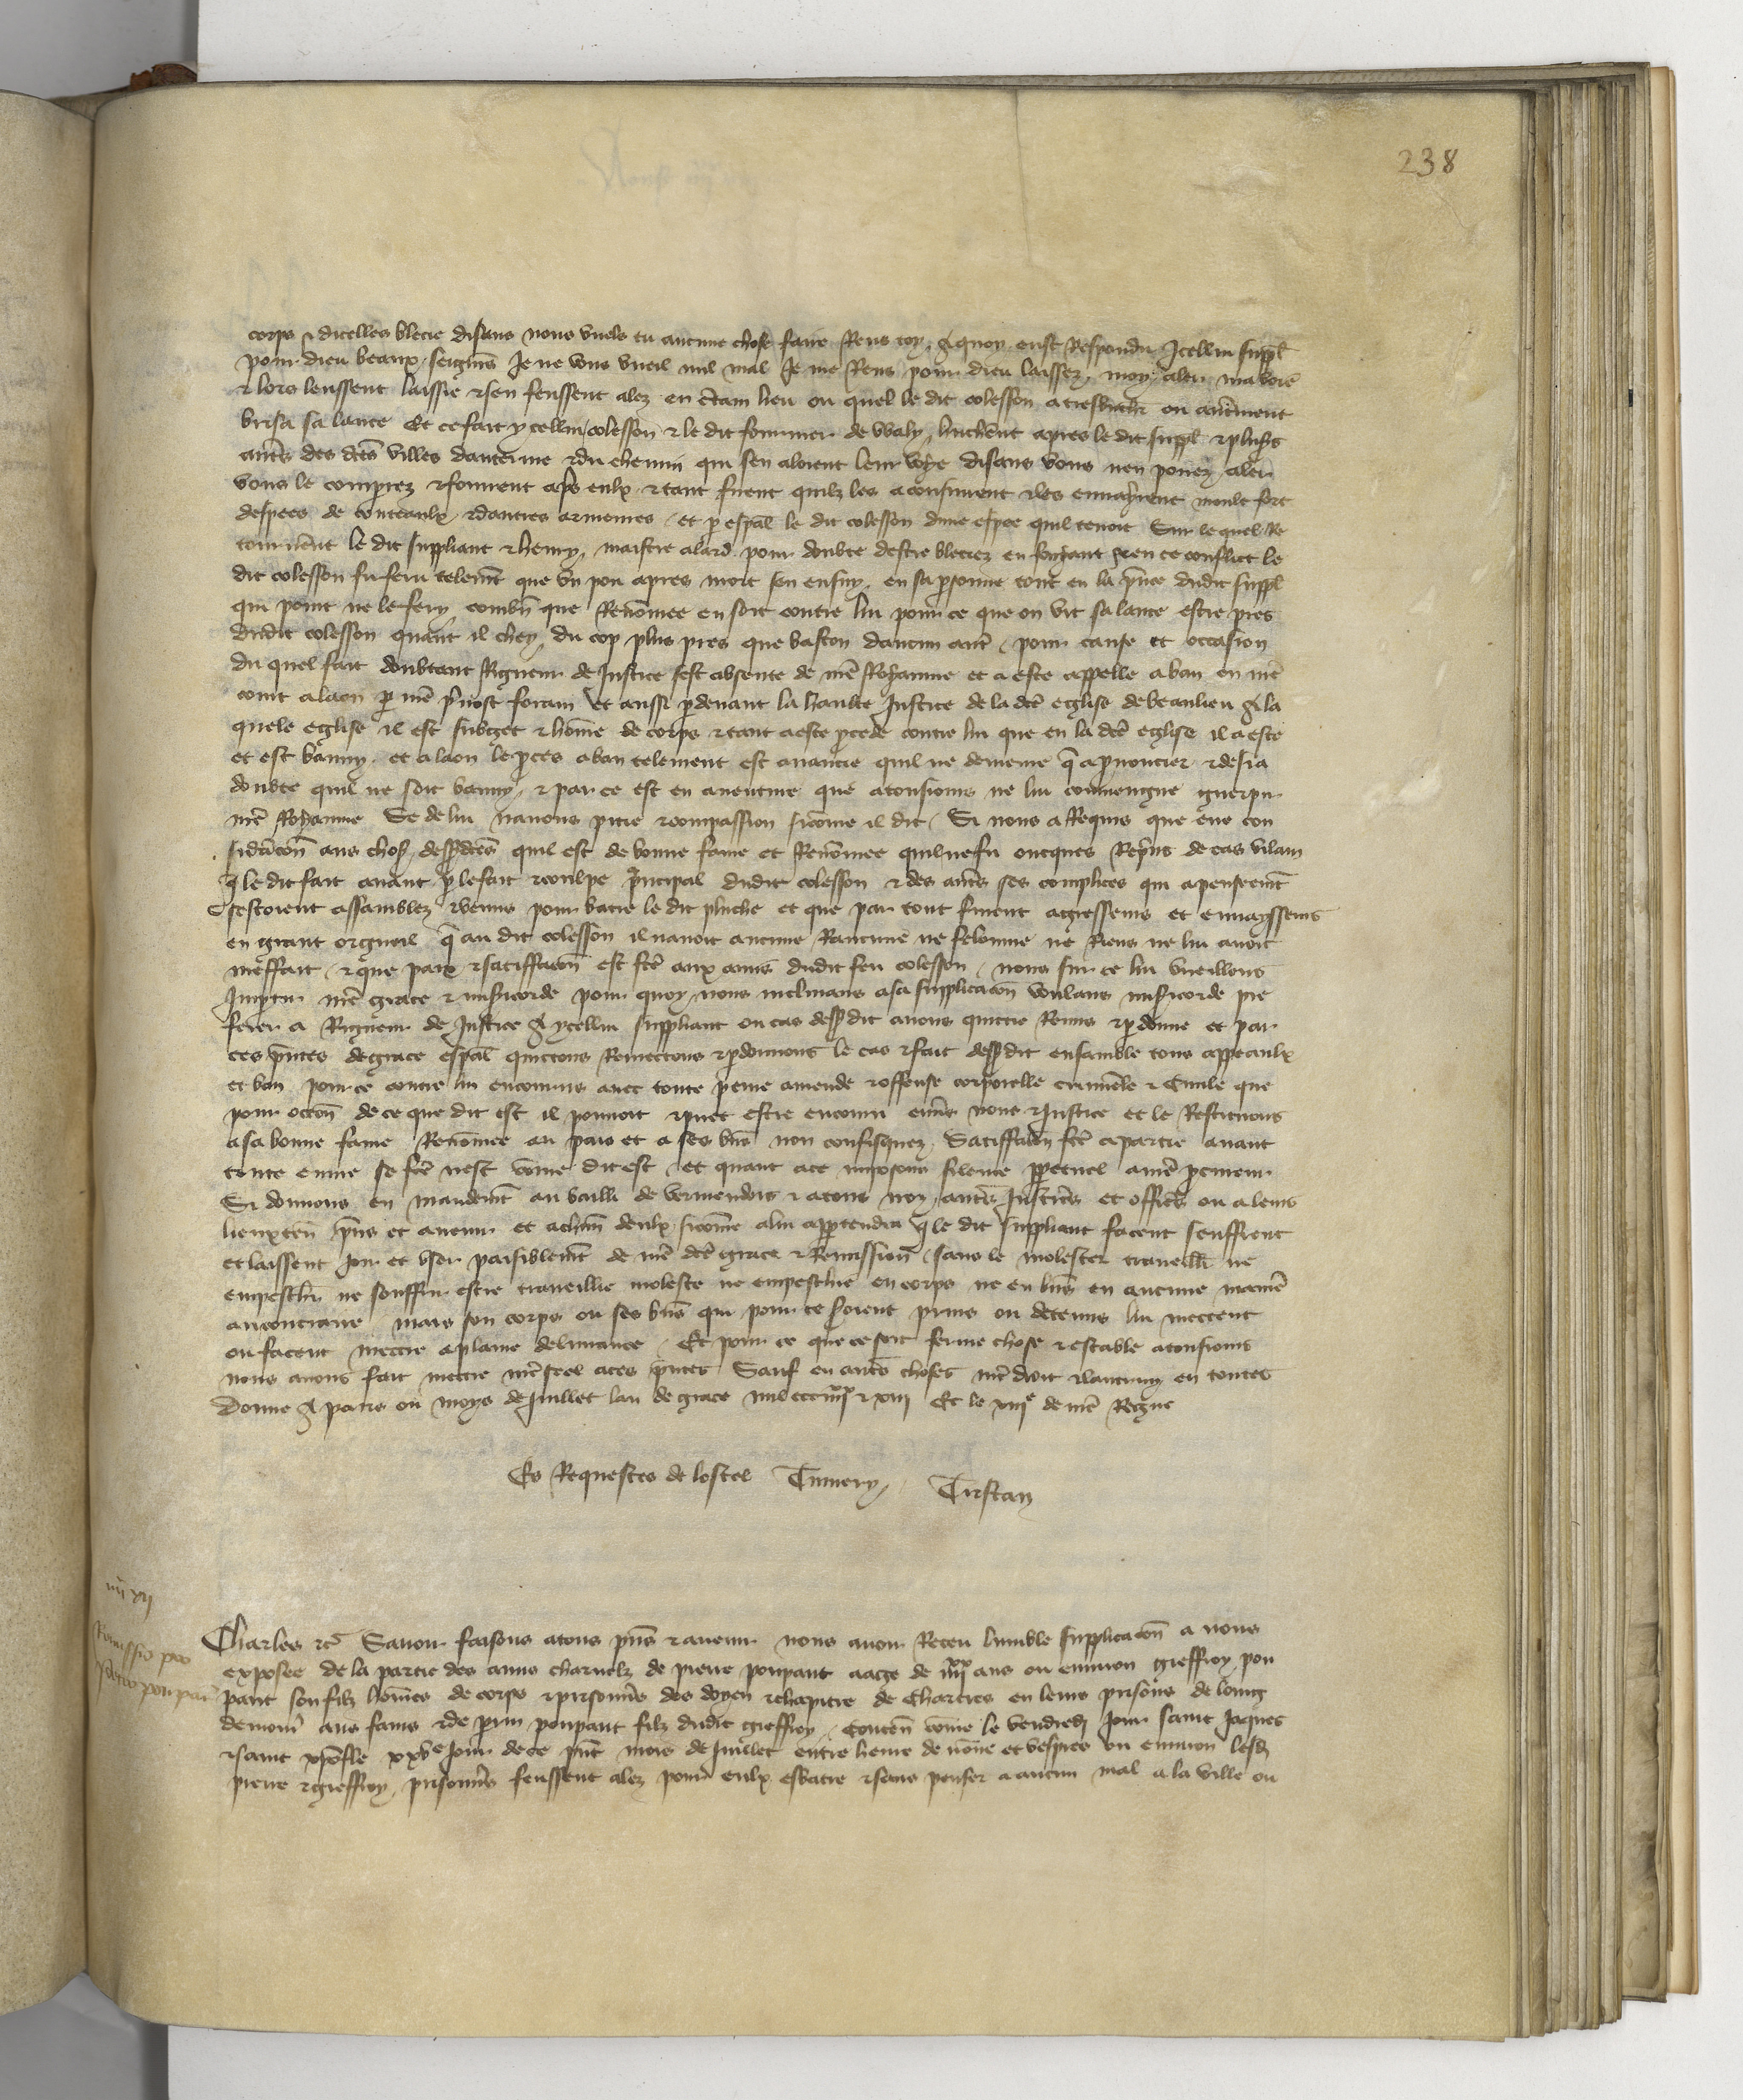 238
corps & dicelles blecie disans nous vuels tu aucune chose faire Rens toy. A quoy eust Respondu Icellui suppl
pour dieu beaux seigns Je ne vous vueil nul mal Je me Rens pour dieu laissez moy aler ma voie
& lors leussent laissie & sen feussent alez en ctain lieu ou quel le dit colesson ou autrement
brisa sa lance Et ce fait ycellui colesson & le dit sommier de Waly huchent apres le dit suppl & plusrs
autrs des dces villes dauterme & du chemin qui sen aloient leur voye disans vous nen pouez aler
vous le comprez & fouirent aps eulx & tant firent quilz les aconsuirent & les envayrent moult fort
despees de couteaulx & dautres armeures et p espal le dit colesson dune espee quil tenoit Sur lequel Re
tournent le dit suppliant & henry maistre alard pour doubte destre bleciez en fouiant & en ce conflict le
dit colesson fu feru telemt que un pou apres mort sen ensuy en sa psonne tout en la pnce dudit suppl
qui point ne le fery combn que Renommee en soit contre lui pour ce que on vit sa lance estre pres
dudit colesson quant il chey du cop plus pres que baston daucun autr pour cause et occasion
du quel fait doubtant Rigueur de Justice sest absente de nre Royaume et a este appelle a ban en nre
court a laon p nre pvost forain et aussi pdevant la haulte Justice de la dce eglise de beaulieu A la
quele eglise il est subget & homme de corps & tant a este pcede contre lui que en la dce eglise il a este
et est banny et a laon le pces a ban telement est avancie quil ne demeure q a pnoncier & desia
doubte quil ne soit banny & par ce est en aventure que a tousiours ne lui conviengne guerpir
nre Royaume Se de lui navons pitie & compassion sicomme il dit Si nous a Requis que eue con
sidacon aus choses dessdces quil est de bonne fame et Renommee quil ne fu oncques Repns de cas vilain
q le dit fait avint p le fait & coulpe pncipal dudit colesson & des autrs ses complices qui apenseemt
sestoient assamblez & venus pour batre le dit pluche et que par tout furent agresseurs et envaysseurs
en grant orgueil q au dit colesson il navoit aucune Rancune ne felonnie ne Riens ne lui avoit
meffait & que paix & satiffacon est fce aux amis dudit feu colesson nous sur ce lui vueillons
Impetir nre grace & misericorde pour quoy nous inclinans a sa supplicacon voulans misericorde pre
ferer a Rigueur de Justice A ycellui suppliant ou cas dessdit avons quictie Remis & pdonne et par
ces pntes de grace espal quictons Remectons & pdonnons le cas & fait dessdit ensamble tous appeaulx
et ban pour ce contre lui encourus avec toute peine amende & offense corporelle criminele & Civile que
pour occon de ce que dit est il pouvoit & puet estre encouru envers nous & Justice et le Restituons
a sa bonne fame Renommee au pais et a ses bns non confisquez Satiffacon fce a partie avant
toute euvre se fce nest comme dit est et quant a ce imposons silence ppetuel a nre pcureur
Si donnons en mandemt au bailli de vermendois & a tous noz autrs Justicrs et officrs ou a leurs
lieuxten pns et avenir et a chun deulx sicomme a lui appartendra q le dit suppliant facent seuffrent
et laissent Joir et user paisiblemt de nre dce grace & Remission sans le molester travaillr ne
empeschr ne souffrir estre traveillie moleste ne empeschie en corps ne en bns en aucune maniere
au contraire mais son corps ou ses bns qui pour ce seroient prins ou detenus lui mectent
ou facent mectre a plaine delivrance Et pour ce que ce soit ferme chose & estable a tousiours
nous avons fait mectre nre scel a ces pntes Sauf en autrs choses nre droit & lautruy en toutes
Donne A paris ou moys de Juillet lan de grace mil ccc iiiixx & xiii Et le xiiie de nre Regne
Es Requestes de lostel Tumery Tristan
iiii xii
Remissio pro
petro poupart
Charles &c Savoir faisons a tous pns & avenir nous avoir Receu lumble supplicacon a nous
exposee de la partie des amis charnelz de pierre poupart aage de iiiixx ans ou environ gieffroy pou
part son filz hommes de corps & prisonns des doyen & chapitre de Chartres en leurs prisons de loing
demour aus fains & de prin poupart filz dudit gieffroy Conten comme le vendredi Jour saint Jaques
& saint xpofle xxve Jour de ce pnt mois de Juillet entre heure de nonne et vespres ou environ lesd
pierre & gieffroy prisonns feussent alez pour eulx esbatre & sans penser a aucun mal a la ville ou